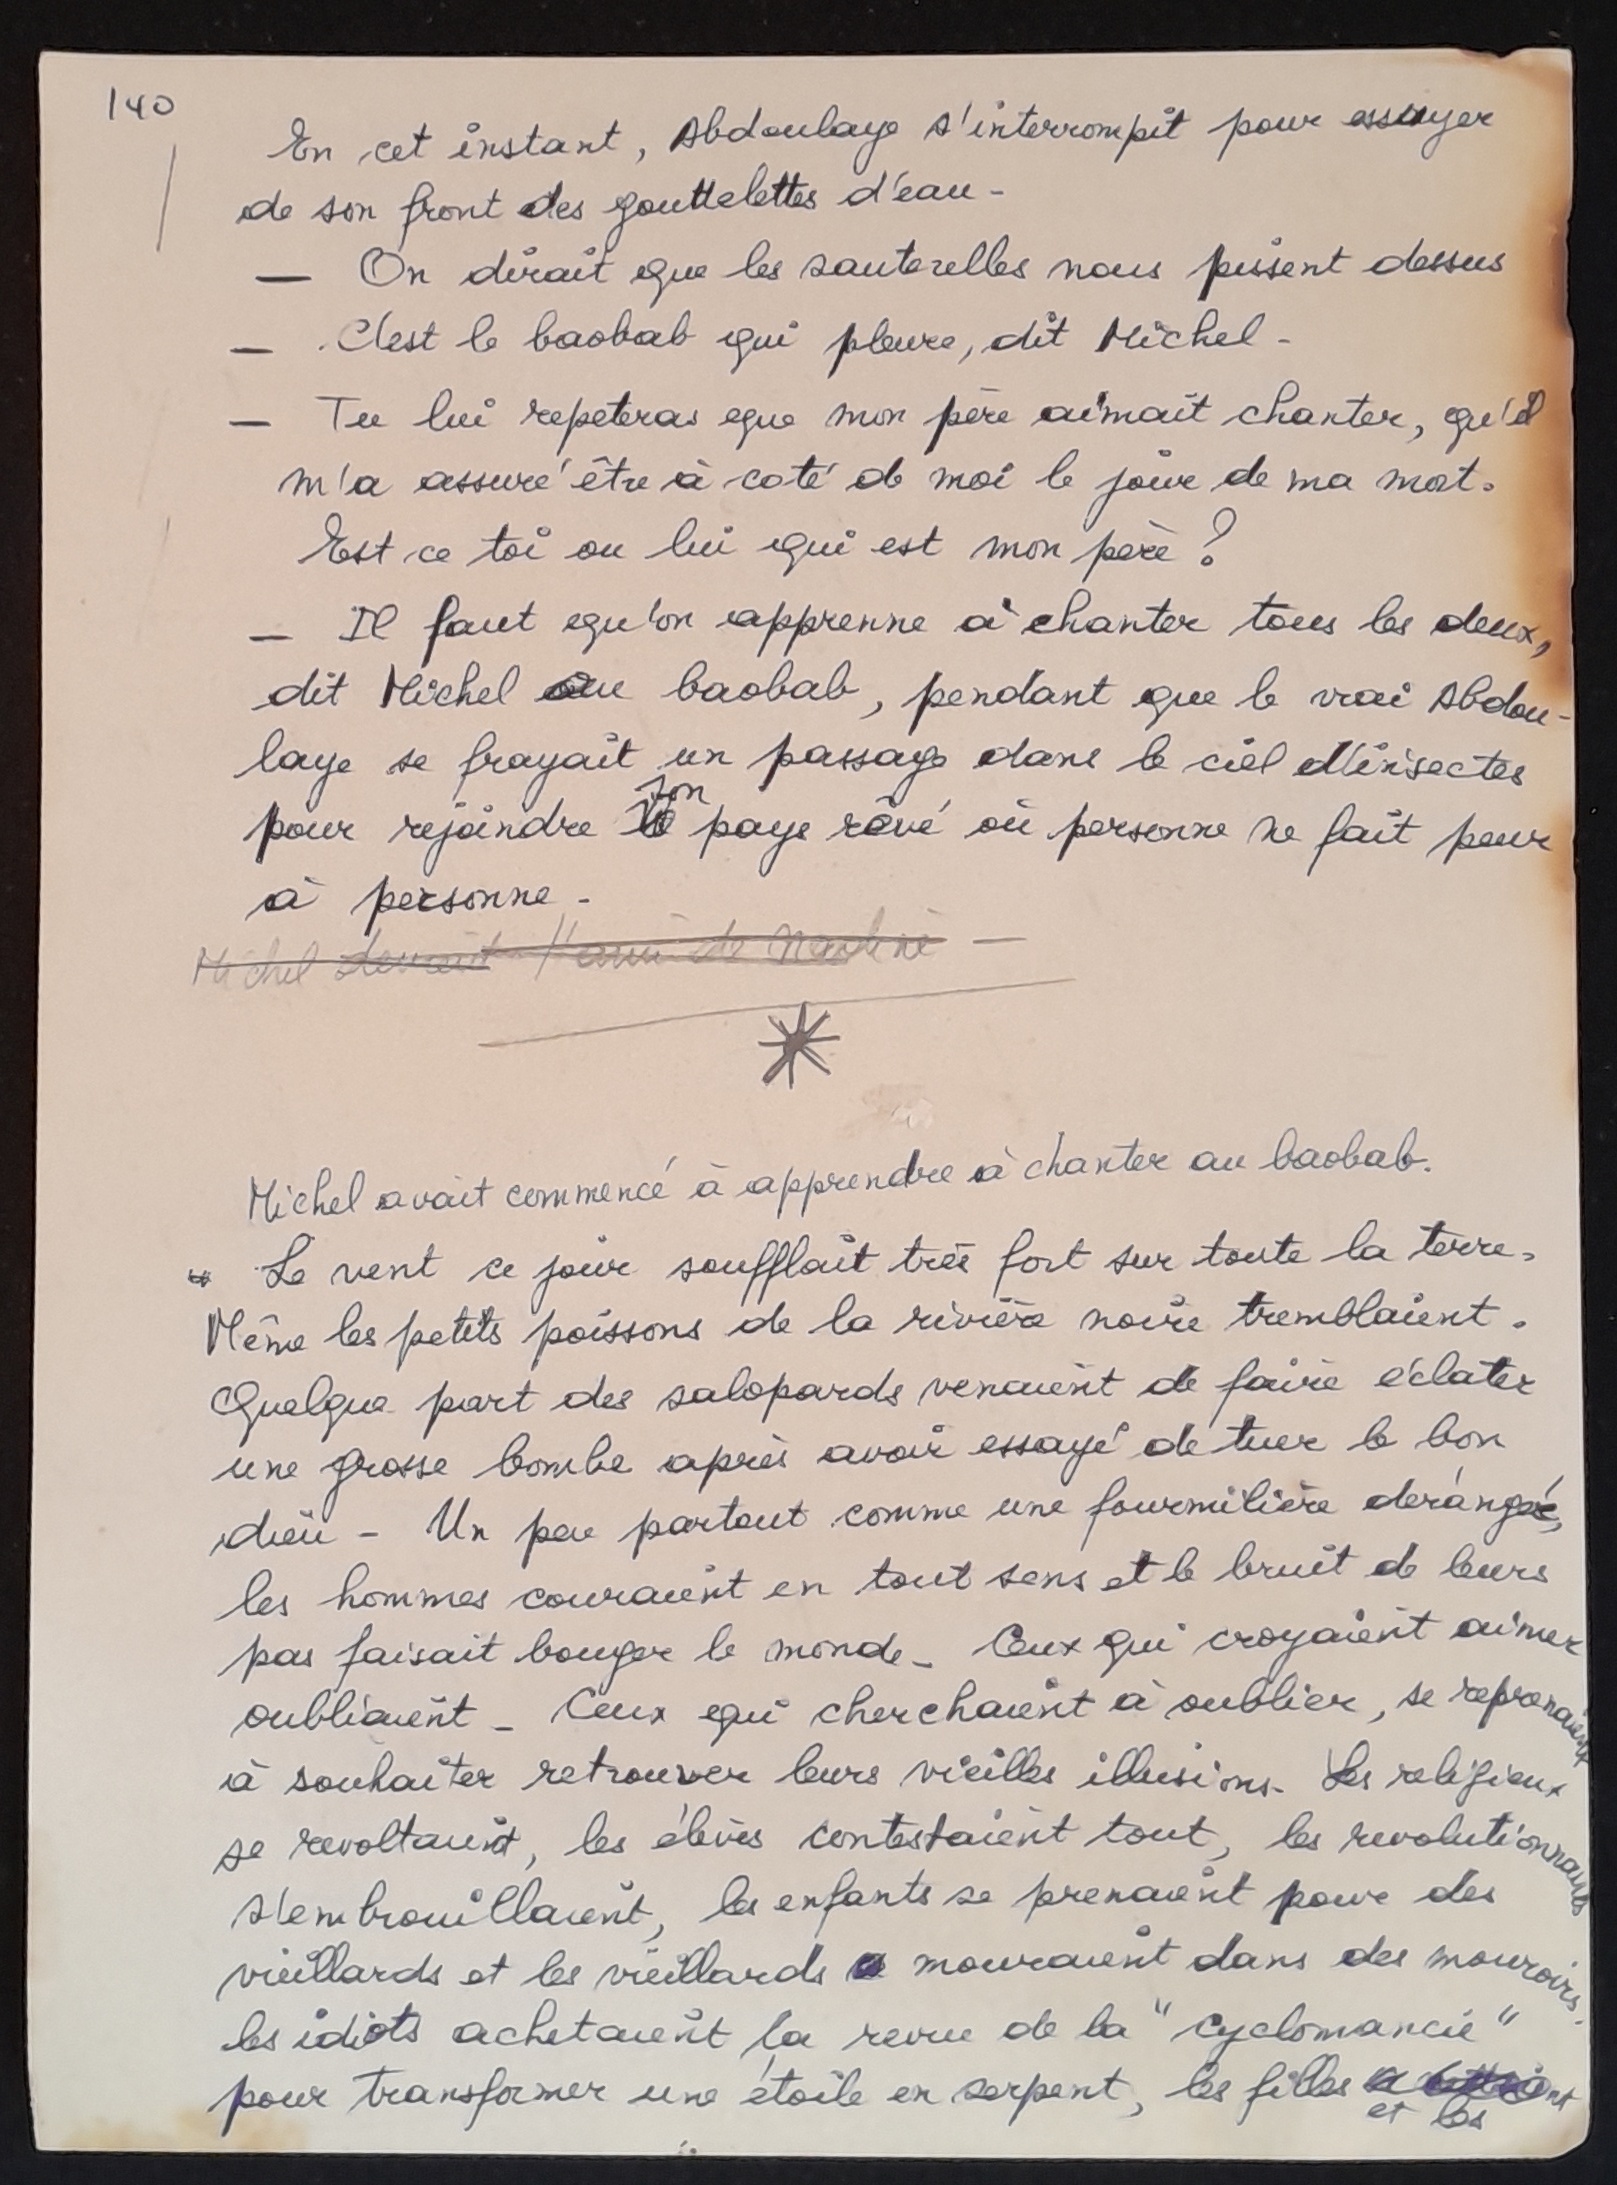 140
En cet instant, Abdoulaye s'interrompit pour essuyer
de son front des gouttelettes d'eau -
— On dirait que les sauterelles nous pissent dessus
— C'est le baobab qui pleure, dit Michel -
— Tu lui repeteras que mon père aimait chanter, qu'il
m'a assuré être à coté de moi le jour de ma mort.
Est ce toi ou lui qui est mon père ?
— Il faut qu'on apprenne à chanter tous les deux,
dit Michel au baobab, pendant que le vrai Abdou-
laye se frayait un passage dans le ciel d'insectes
son
pour rejoindre le pays rêvé où personne ne fait peur
à personne -
Michel devient l'ami de —
Michel avait commencé à apprendre à chanter au baobab.
Le vent ce jour soufflait très fort sur toute la terre.
Même les petits poissons de la rivière noire tremblaient.
Quelque part des salopards venaient de faire éclater
une grosse bombe après avoir essayé de tuer le bon
dieu - Un peu partout comme une fourmilière derangée,
les hommes couraient en tout sens et le bruit de leurs
pas faisait bouger le monde - Ceux qui croyaient aimer
oubliaient - Ceux qui cherchaient à oublier, se reprenaient
à souhaiter retrouver leurs vieilles illusions - Les religieux
se revoltaient, les élèves contestaient tout, les revolutionnaires
s'embrouillaient, les enfants se prenaient pour des
vieillards et les vieillards mouraient dans des mouroirs,
les idiots achetaient la revue de la "cyclomancie"
pour transformer une étoile en serpent, les filles
et les